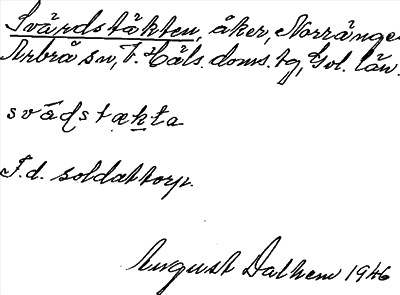 Svärdstäkten, åker, Norränge
Arbrå sn, V. Häls. doms. tg, Gvl. län.
svädstækta
F.d. soldattorp.
August Dalhem 1946